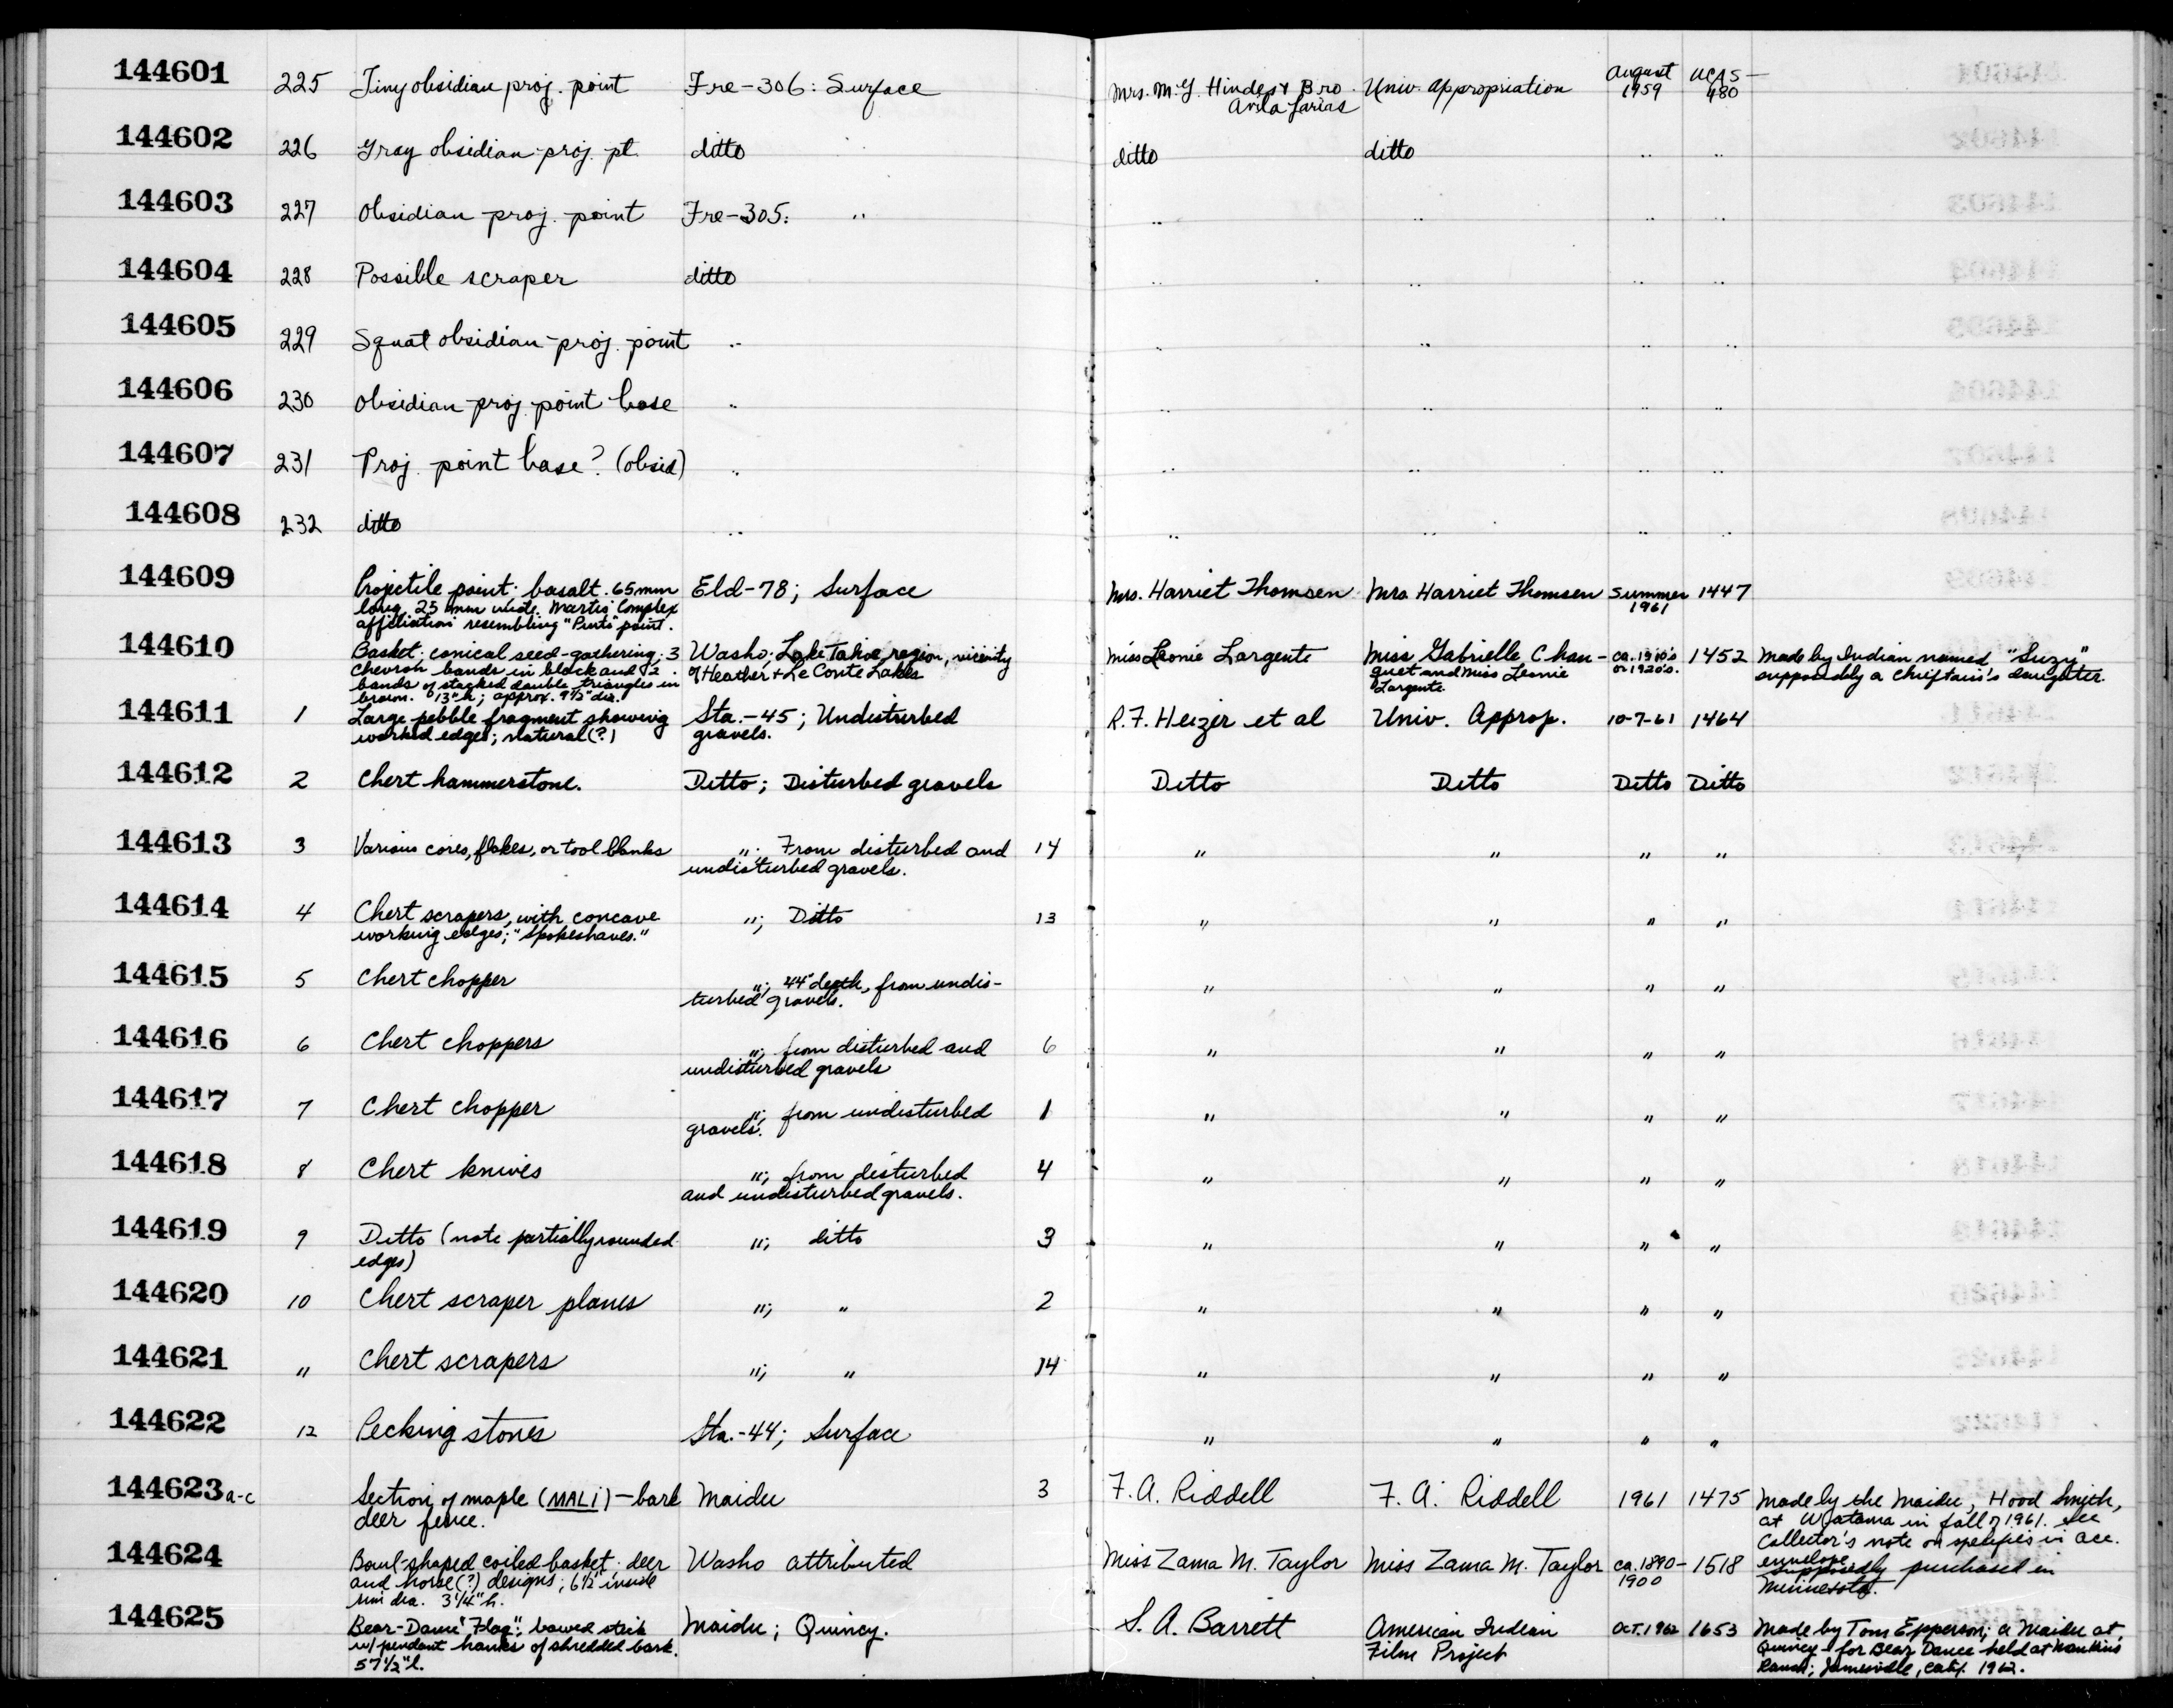 144601 225 Tiny obsidian proj. point Fre-306: Surface Mrs. M.Y. Hindes & Bro. Univ. Appropriation August UCAS-
Avila Farias 1959 480
144602 226 Gray obsidian proj. pt. ditto ditto ditto .. ..
144603 227 Obsidian proj. point Fre-305: .. .. .. .. ..
144604 228 Possible scraper ditto .. .. .. ..
144605 229 Squat obsidian proj. point .. .. .. .. ..
144606 230 Obsidian proj. point base .. .. .. .. ..
144607 231 Proj. point base? (obsid) .. .. .. .. ..
144608 232 ditto .. .. .. .. ..
144609 Projectile point: basalt. 65mm Eld-78; Surface Mrs. Harriet Thomsen Mrs Harriet Thomsen Summer 1447
long, 25 mm wide. Martis Complex 1961
affiliation resembling "Pinto" point.
144610 Basket: conical seed-gathering; 3 Washo; Lake Tahoe region, vicinity Miss Leonie Largente Miss Gabrielle Chan- ca. 1910's 1452 Made by Indian named "Suzy"
chevron bands in black and 2 of Heather & Le Conte Lakes guet and Miss Leonie or 1920's. supposedly a chieftain's daughter.
bands of stacked double triangles in Largente.
brown. 13" h; approx. 9½" dia.
144611 1 Large pebble fragment showing Sta.-45; Undisturbed R.F. Heizer et al Univ. Approp. 10-7-61 1464
worked edges; natural(?) gravels.
144612 2 Chert hammerstone. Ditto; Disturbed gravels Ditto Ditto Ditto Ditto
144613 3 Various cores, flakes, or tool blanks "; From disturbed and 14 " " " "
undisturbed gravels.
144614 4 Chert scrapers, with concave "; Ditto 13 " " " "
working edges; "Spokeshaves."
144615 5 Chert chopper "; 44" depth, from undis- " " " "
turbed gravels.
144616 6 Chert choppers "; from disturbed and 6 " " " "
undisturbed gravels
144617 7 Chert chopper "; from undisturbed 1 " " " "
gravels.
144618 8 Chert knives "; from disturbed 4 " " " "
and undisturbed gravels.
144619 9 Ditto (note partially rounded "; ditto 3 " " " "
edges)
144620 10 Chert scraper planes "; " 2 " " " "
144621 11 Chert scrapers "; " 14 " " " "
144622 12 Pecking stones Sta.-44; Surface " " " "
144623 a-c Section of maple (MALI)-bark Maidu 3 F.A. Riddell F.A. Riddell 1961 1475 Made by the Maidu, Hood Smith,
deer fence. at Watama in fall of 1961. See
Collector's note on specifics in acc.
envelope.
144624 Bowl-shaped coiled basket; deer Washo attributed Miss Zama M. Taylor Miss Zama M. Taylor ca. 1890- 1518 Supposedly purchased in
and horse(?) designs; 6½" inside 1900 Minnesota.
rim dia. 3¼" h.
144625 Bear-Dance "Flag"; bowed stick Maidu; Quincy. S.A. Barrett American Indian Oct. 1962 1653 Made by Tom Epperson; a Maidu at
w/pendant hanks of shredded bark. Film Project Quincy for Bear Dance held at Mankins
57½" l. Ranch; Janesville, Calif. 1962.